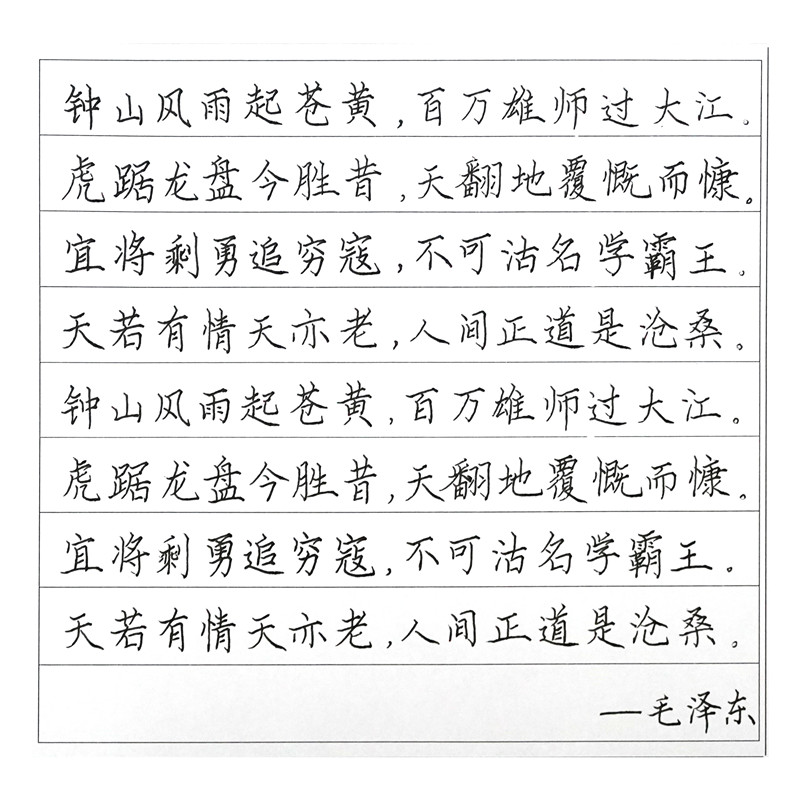 钟山风雨起苍黄,百万雄师过大江。
虎踞龙盘今胜昔,天翻地覆慨而慷。
宜将剩勇追穷寇,不可沽名学霸王。
天若有情天亦老,人间正道是沧桑。
钟山风雨起苍黄,百万雄师过大江。
虎踞龙盘今胜昔,天翻地覆慨而慷。
宜将剩勇追穷寇,不可沽名学霸王。
天若有情天亦老,人间正道是沧桑。
—毛泽东